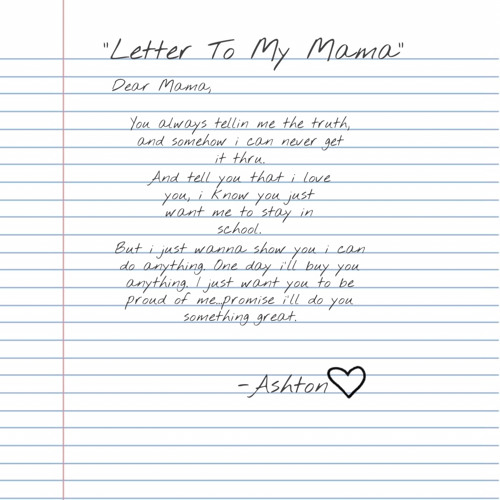 "Letter To My Mama"
Dear Mama,
You always tellin me the truth,
and somehow i can never get
it thru.
And tell you that i love
you, i know you just
want me to stay in
school.
But i just wanna show you i can
do anything. One day i'll buy you
anything. I just want you to be
proud of me...promise i'll do you
something great.
- Ashton